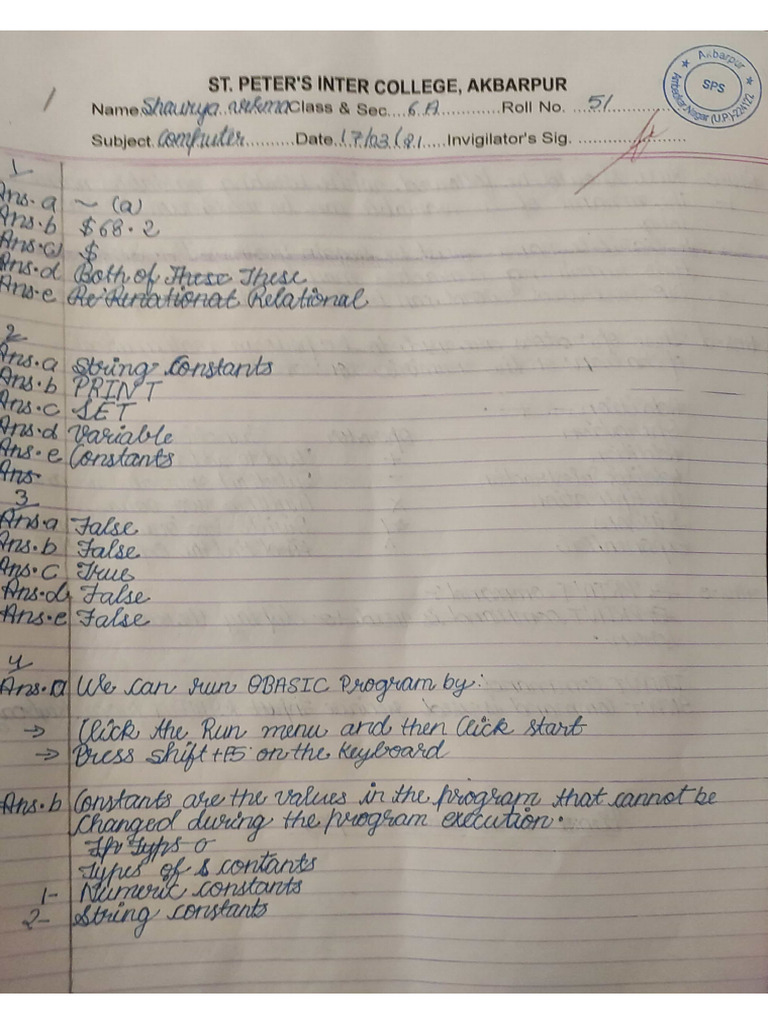 ST. PETER'S INTER COLLEGE, AKBARPUR
Name Shaurya verma Class & Sec. 6 A Roll No. 51
Subject Computer Date 17/03/21 Invigilator's Sig.
Akbarpur
SPS
Ambedkar Nagar (U.P.)-224122
1
Ans.a ~ (a)
Ans.b $68.2
Ans.c) $
Ans.d Both of These These
Ans.e Relational
2
Ans.a String Constants
Ans.b PRINT
Ans.c SET
Ans.d Variable
Ans.e Constants
Ans.
3
Ans.a False
Ans.b False
Ans.c True
Ans.d False
Ans.e False
4
Ans.a We can run QBASIC Program by:
→ Click the Run menu and then Click start
→ Press Shift+F5 on the Keyboard
Ans.b Constants are the values in the program that cannot be
changed during the program execution.
Types of contants
1- Numeric constants
2- String constants